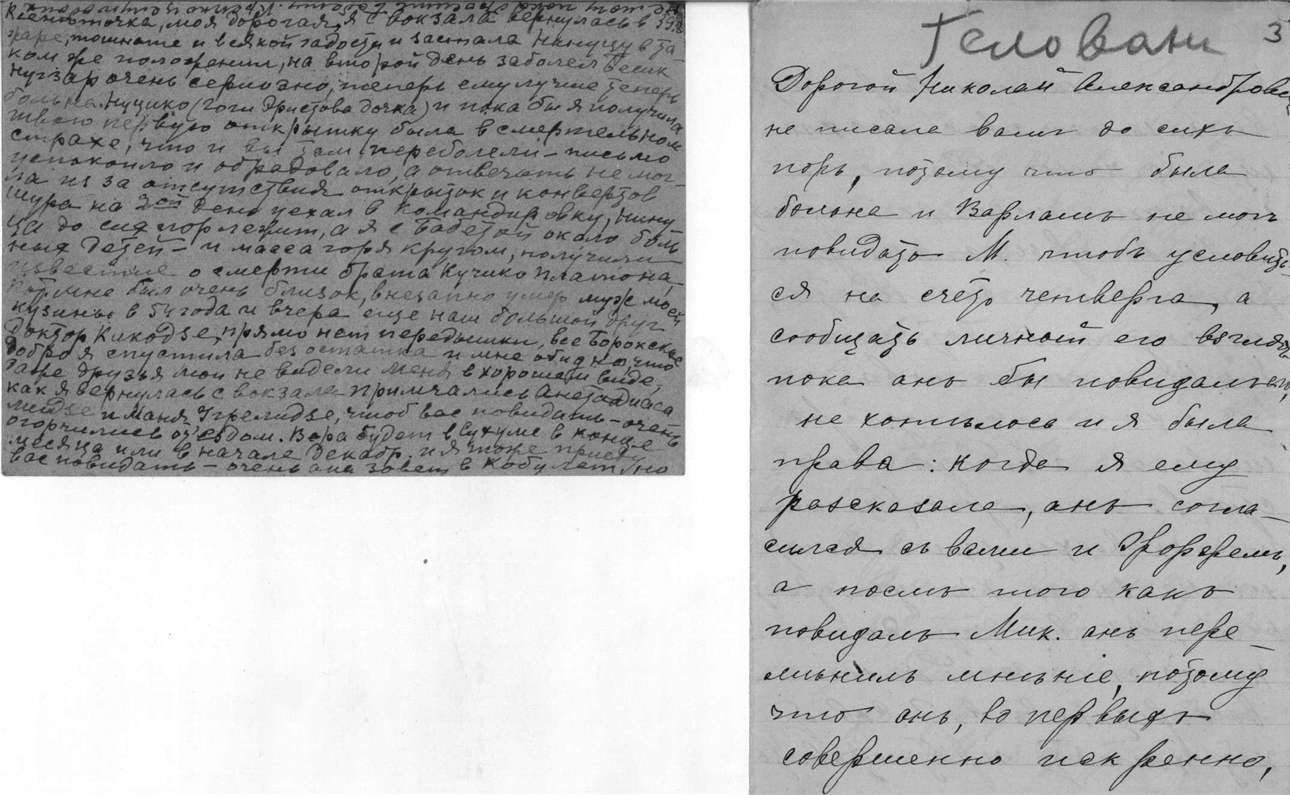 Ксениточка, моя дорогая, я с вокзала вернулась в 39,8
жаре, тошноте и всякой гадости и застала Нануцу в та
ком же положении, на второй день заболел Бесик
Нугзар очень серьозно, теперь ему лучше теперь
больна Нуцико (Гоги Эристова дочка) и пока бы я получила
твою первую открытку была в смертельном
страхе, что и вы там переболели – письмо
успокоило и обрадовало, а отвечать не мог-
ла из за отсутствия открыток и конвертов
Шура на 3ой день уехал в командировку, Нану
ца до сих пор лежит, а я с Бабетой около боль
ных детей – и масса горя кругом, получили
известие о смерти брата Кучико Платона
мне был очень близок, внезапно умер муж моей
кузины в 54 года и вчера еще наш большой друг
Доктор Кикодзе, прямо нет передышки, все Борокское
добро я спустила без остатка и мне обидно, что
друзья мои не видели меня в хорошем виде,
как я вернулась с вокзала примчались
и Маня чтоб вас повидать – очень
огорчились отъездом. Вера будет в Сухуме в конце
месяца или в начале декабр. и я тоже приеду
вас повидать – очень она зовет в Кобулет, но
Геловани 3
Дорогой Николай Александрович
не писала вамъ до сихъ
поръ, потому что была
больна и Варламъ не могъ
повидать М. чтобъ условить-
ся на счетъ четверга, а
сообщать личный его взглядъ
пока онъ бы повидалъ его,
не хотѣлось и я была
права: когда я ему
разсказала, онъ согла-
сился съ вами и
а послѣ того какъ
повидалъ Мик. онъ пере
мѣнилъ мнѣніе, потому
что онъ, во первыхъ
совершенно искренно,